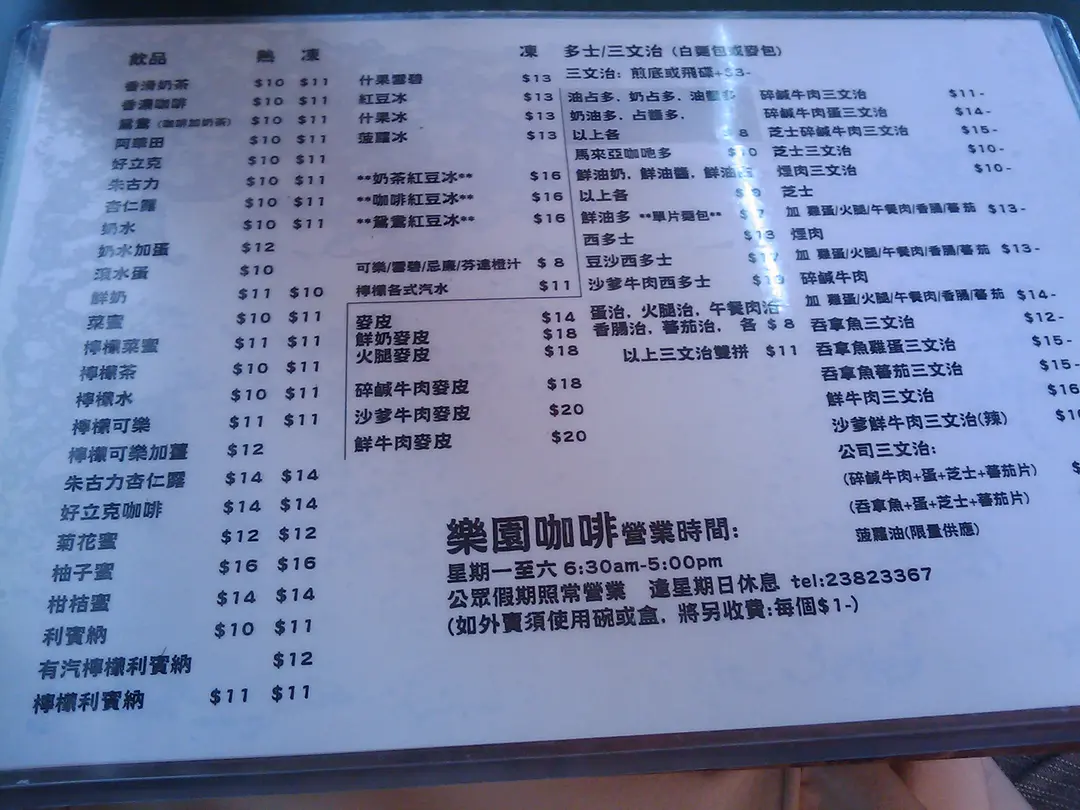 飲品 熱 凍
香滑奶茶 $10 $11
香濃咖啡 $10 $11
鴛鴦 (咖啡加奶茶) $10 $11
阿華田 $10 $11
好立克 $10 $11
朱古力 $10 $11
杏仁露 $10 $11
奶水 $10 $11
奶水加蛋 $12
滾水蛋 $10
鮮奶 $11 $10
菜蜜 $10 $11
檸檬菜蜜 $11 $11
檸檬茶 $10 $11
檸檬水 $10 $11
檸檬可樂 $11 $11
檸檬可樂加薑 $12
朱古力杏仁露 $14 $14
好立克咖啡 $14 $14
菊花蜜 $12 $12
柚子蜜 $16 $16
柑桔蜜 $14 $14
利賓納 $10 $11
有汽檸檬利賓納 $12
檸檬利賓納 $11 $11
凍
什果雪碧 $13
紅豆冰 $13
什果冰 $13
菠蘿冰 $13
**奶茶紅豆冰** $16
**咖啡紅豆冰** $16
**鴛鴦紅豆冰** $16
可樂/雪碧/忌廉/芬達橙汁 $8
檸檬各式汽水 $11
麥皮 $14
鮮奶麥皮 $18
火腿麥皮 $18
碎鹹牛肉麥皮 $18
沙爹牛肉麥皮 $20
鮮牛肉麥皮 $20
多士/三文治 (白麵包或麥包)
三文治: 煎底或飛碟+$3-
油占多, 奶占多, 油醬多
奶油多, 占醬多,
以上各 $8
馬來亞咖吔多 $10
鮮油奶, 鮮油醬, 鮮油占
以上各 $9
鮮油多 **單片麵包** $7
西多士 $13
豆沙西多士
沙爹牛肉西多士
蛋治, 火腿治, 午餐肉治
香腸治, 蕃茄治, 各 $8
以上三文治雙拼 $11
碎鹹牛肉三文治 $11-
碎鹹牛肉蛋三文治 $14-
芝士碎鹹牛肉三文治 $15-
芝士三文治 $10-
煙肉三文治 $10-
芝士
加 雞蛋/火腿/午餐肉/香腸/蕃茄 $13-
煙肉
加 雞蛋/火腿/午餐肉/香腸/蕃茄 $13-
碎鹹牛肉
加 雞蛋/火腿/午餐肉/香腸/蕃茄 $14-
吞拿魚三文治 $12-
吞拿魚雞蛋三文治 $15-
吞拿魚蕃茄三文治 $15-
鮮牛肉三文治 $16
沙爹鮮牛肉三文治(辣)
公司三文治:
(碎鹹牛肉+蛋+芝士+蕃茄片)
(吞拿魚+蛋+芝士+蕃茄片)
菠蘿油(限量供應)
樂園咖啡營業時間:
星期一至六 6:30am-5:00pm
公眾假期照常營業 逢星期日休息 tel:23823367
(如外賣須使用碗或盒, 將另收費:每個$1-)